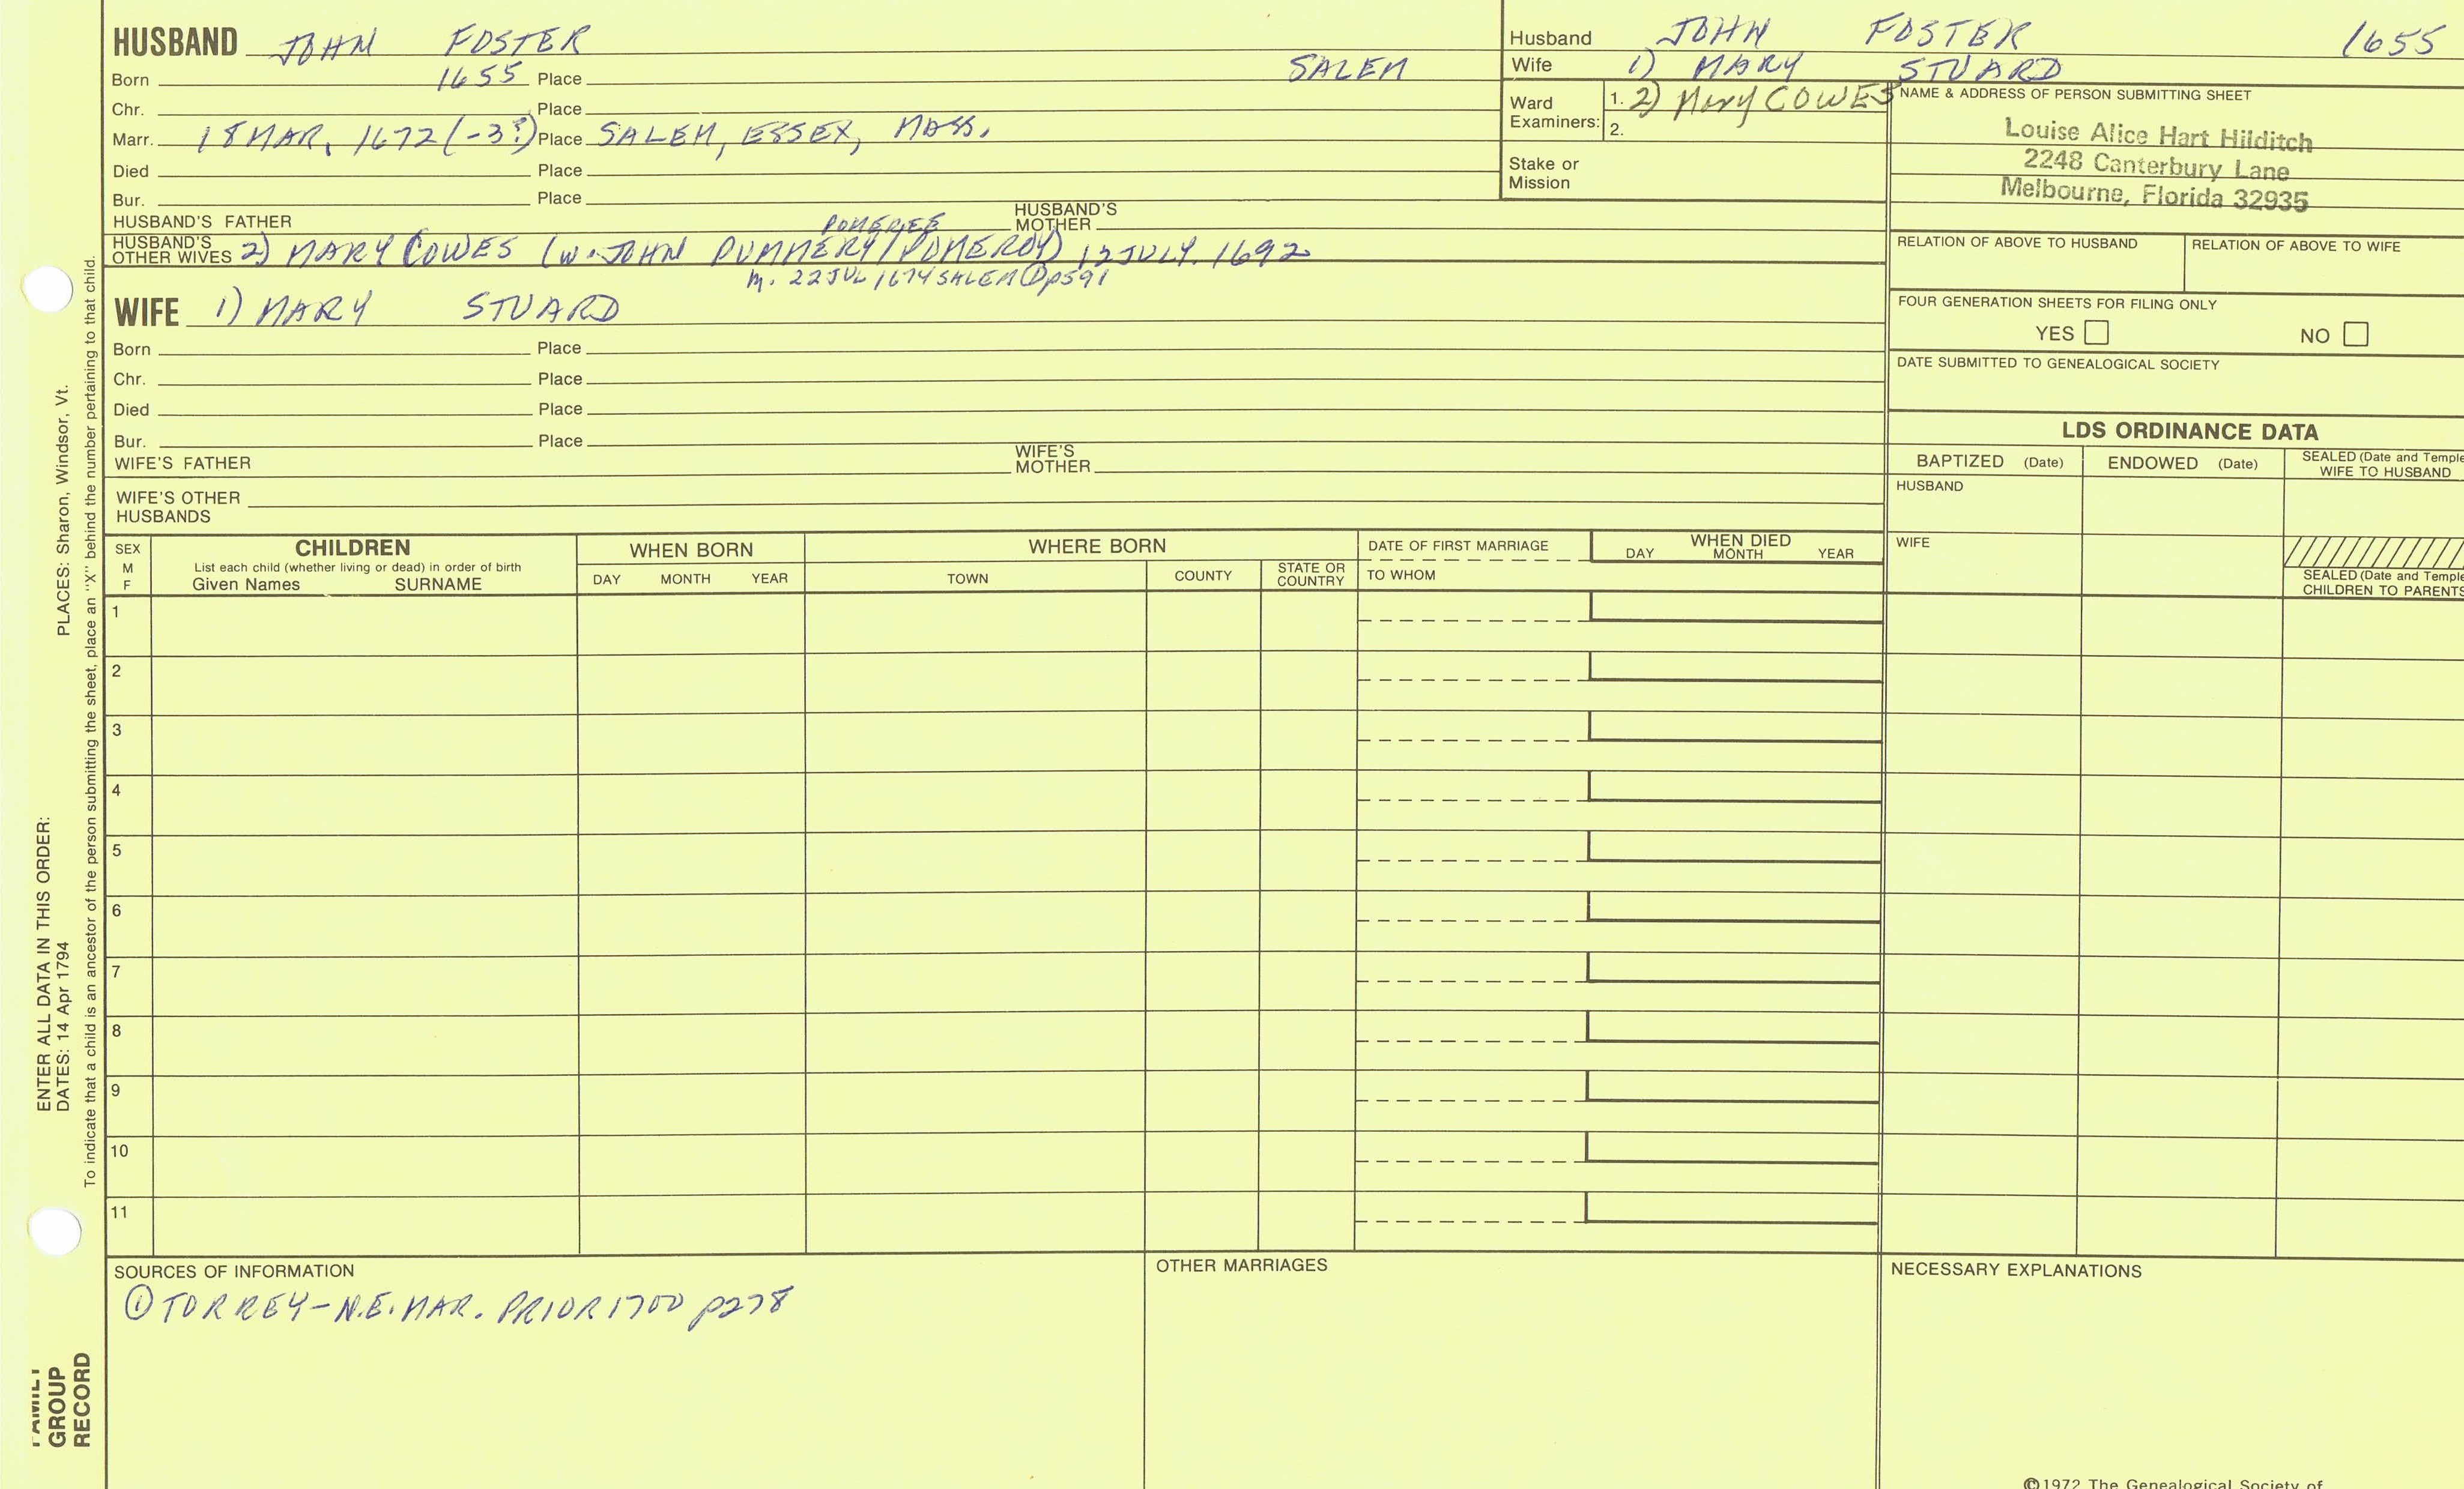 HUSBAND JOHN FOSTER
Born 1655 Place SALEM
Chr. Place
Marr. 18 MAR, 1672 (-3?) Place SALEM, ESSEX, MASS.
Died Place
Bur. Place
HUSBAND'S FATHER HUSBAND'S MOTHER
POMERIE
HUSBAND'S OTHER WIVES 2) MARY COWES (W. JOHN PUMMERY/POMEROY) 12 JULY. 1692
m. 22 JUL 1674 SALEM ① p591
WIFE 1) MARY STUARD
Born Place
Chr. Place
Died Place
Bur. Place
WIFE'S FATHER WIFE'S MOTHER
WIFE'S OTHER HUSBANDS
Husband JOHN FOSTER 1655
Wife 1) MARY STUARD
Ward Examiners: 1. 2) Mary COWES
2.
Stake or Mission
NAME & ADDRESS OF PERSON SUBMITTING SHEET
Louise Alice Hart Hilditch
2248 Canterbury Lane
Melbourne, Florida 32935
RELATION OF ABOVE TO HUSBAND RELATION OF ABOVE TO WIFE
FOUR GENERATION SHEETS FOR FILING ONLY
YES NO
DATE SUBMITTED TO GENEALOGICAL SOCIETY
LDS ORDINANCE DATA
BAPTIZED (Date) ENDOWED (Date) SEALED (Date and Temple
WIFE TO HUSBAND
HUSBAND
WIFE
SEALED (Date and Temple
CHILDREN TO PARENTS
SEX
M
F
CHILDREN
List each child (whether living or dead) in order of birth
Given Names SURNAME
WHEN BORN
DAY MONTH YEAR
WHERE BORN
TOWN COUNTY STATE OR COUNTRY
DATE OF FIRST MARRIAGE
TO WHOM
WHEN DIED
DAY MONTH YEAR
1
2
3
4
5
6
7
8
9
10
11
SOURCES OF INFORMATION
① TORREY-N.E. MAR. PRIOR 1700 p278
OTHER MARRIAGES
NECESSARY EXPLANATIONS
©1972 The Genealogical Society of
FAMILY
GROUP
RECORD
ENTER ALL DATA IN THIS ORDER:
DATES: 14 Apr 1794 PLACES: Sharon, Windsor, Vt.
To indicate that a child is an ancestor of the person submitting the sheet, place an "X" behind the number pertaining to that child.